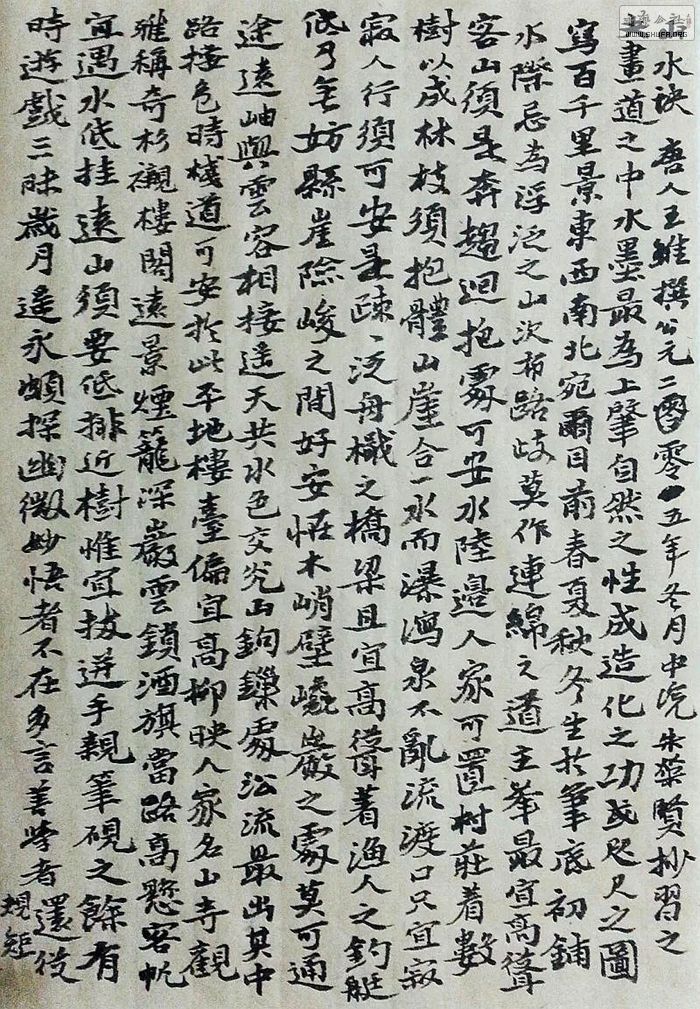 山水訣 唐人王維撰公元二零一五年冬月中浣朱榮賢抄習之
夫畫道之中水墨最為上肇自然之性成造化之功或咫尺之圖
寫百千里景東西南北宛爾目前春夏秋冬生於筆底初鋪
水際忌為浮泛之山次布路歧莫作連綿之道主峯最宜高聳
客山須是奔趨迴抱處可安水陸邊人家可置村莊着數
樹以成林枝須抱體山崖合一水而瀑瀉泉不亂流渡口只宜寂
寂人行須可安是疎〻泛舟檝之橋梁且宜高聳着漁人之釣艇
低乃無妨縣崖險峻之間好安怪木峭壁巉巖之處莫可通
途遠岫與雲容相接遥天共水色交光山鉤鏁處沿流最出其中
路接危時棧道可安於此平地樓臺偏宜高柳映人家名山寺觀
雅稱奇杉襯樓閣遠景煙籠深巖雲鎖酒旗當路高懸客帆
宜遇水低挂遠山須要低排近樹惟宜拔迸手親筆硯之餘有
時遊戲三昧歲月遥永頗探幽微妙悟者不在多言善學者還從
規矩
WWW.SHUFR.ORG